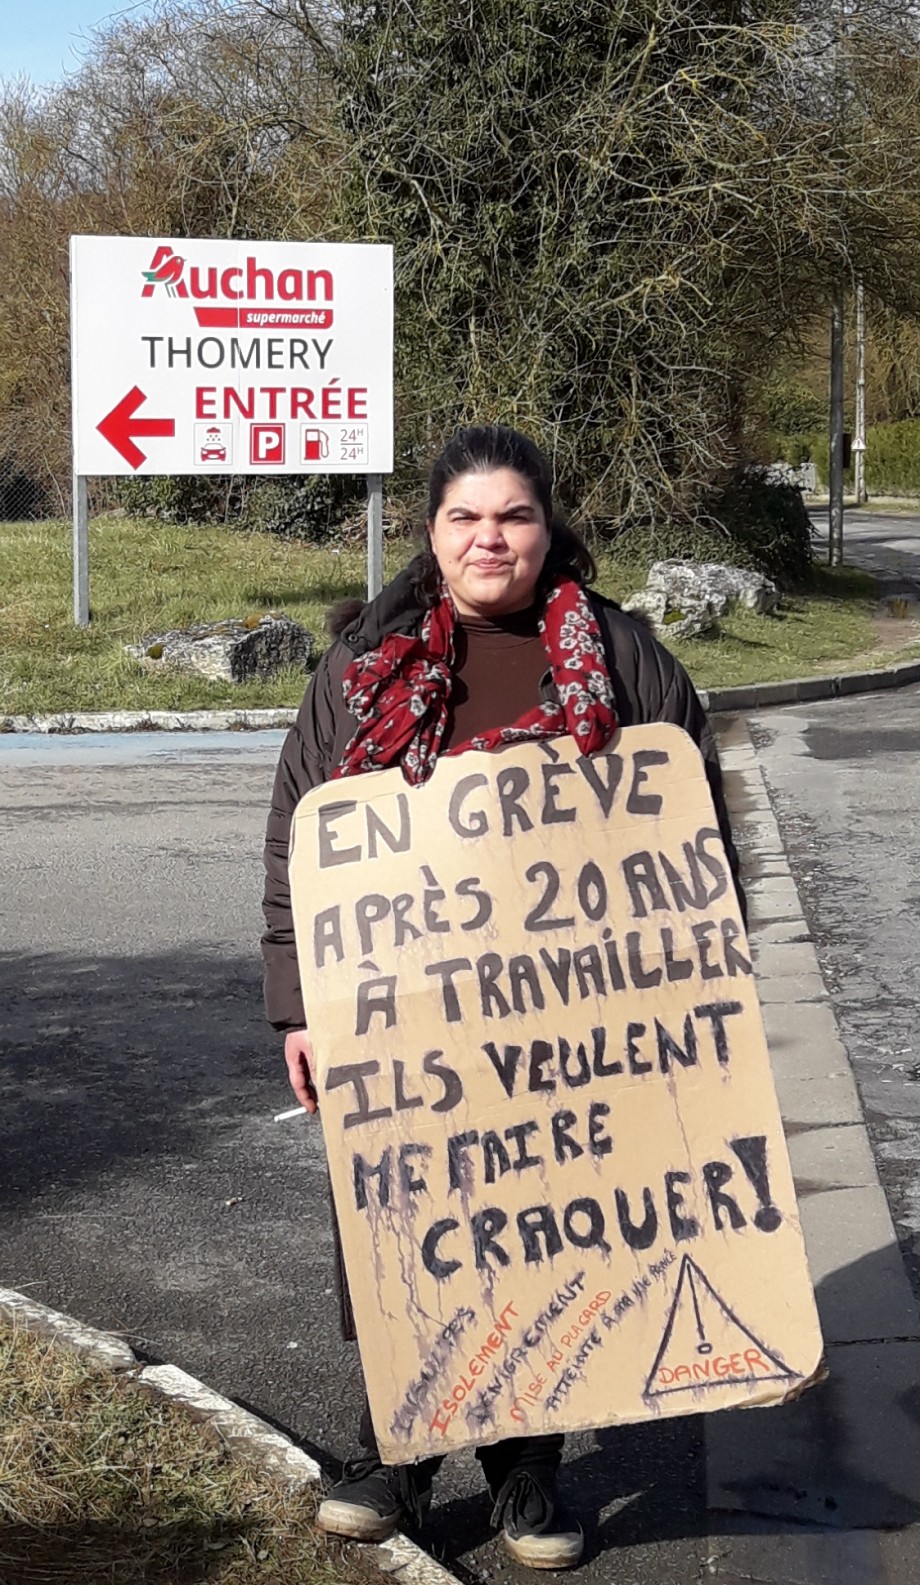 Auchan
supermarché
THOMERY
ENTRÉE
P
24H
24H
EN GRÈVE
APRÈS 20 ANS
À TRAVAILLER
ILS VEULENT
ME FAIRE
CRAQUER!
INSULTES
ISOLEMENT
DÉNIGREMENT
MISE AU PLACARD
ATTEINTE À MA VIE PRIVÉE
DANGER